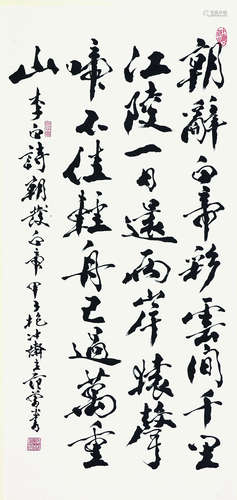 朝辭白帝彩雲間千里
江陵一日還兩岸猿聲
啼不住輕舟已過萬重
山
李白詩朝發白帝 甲子抱冲齋主范曾書